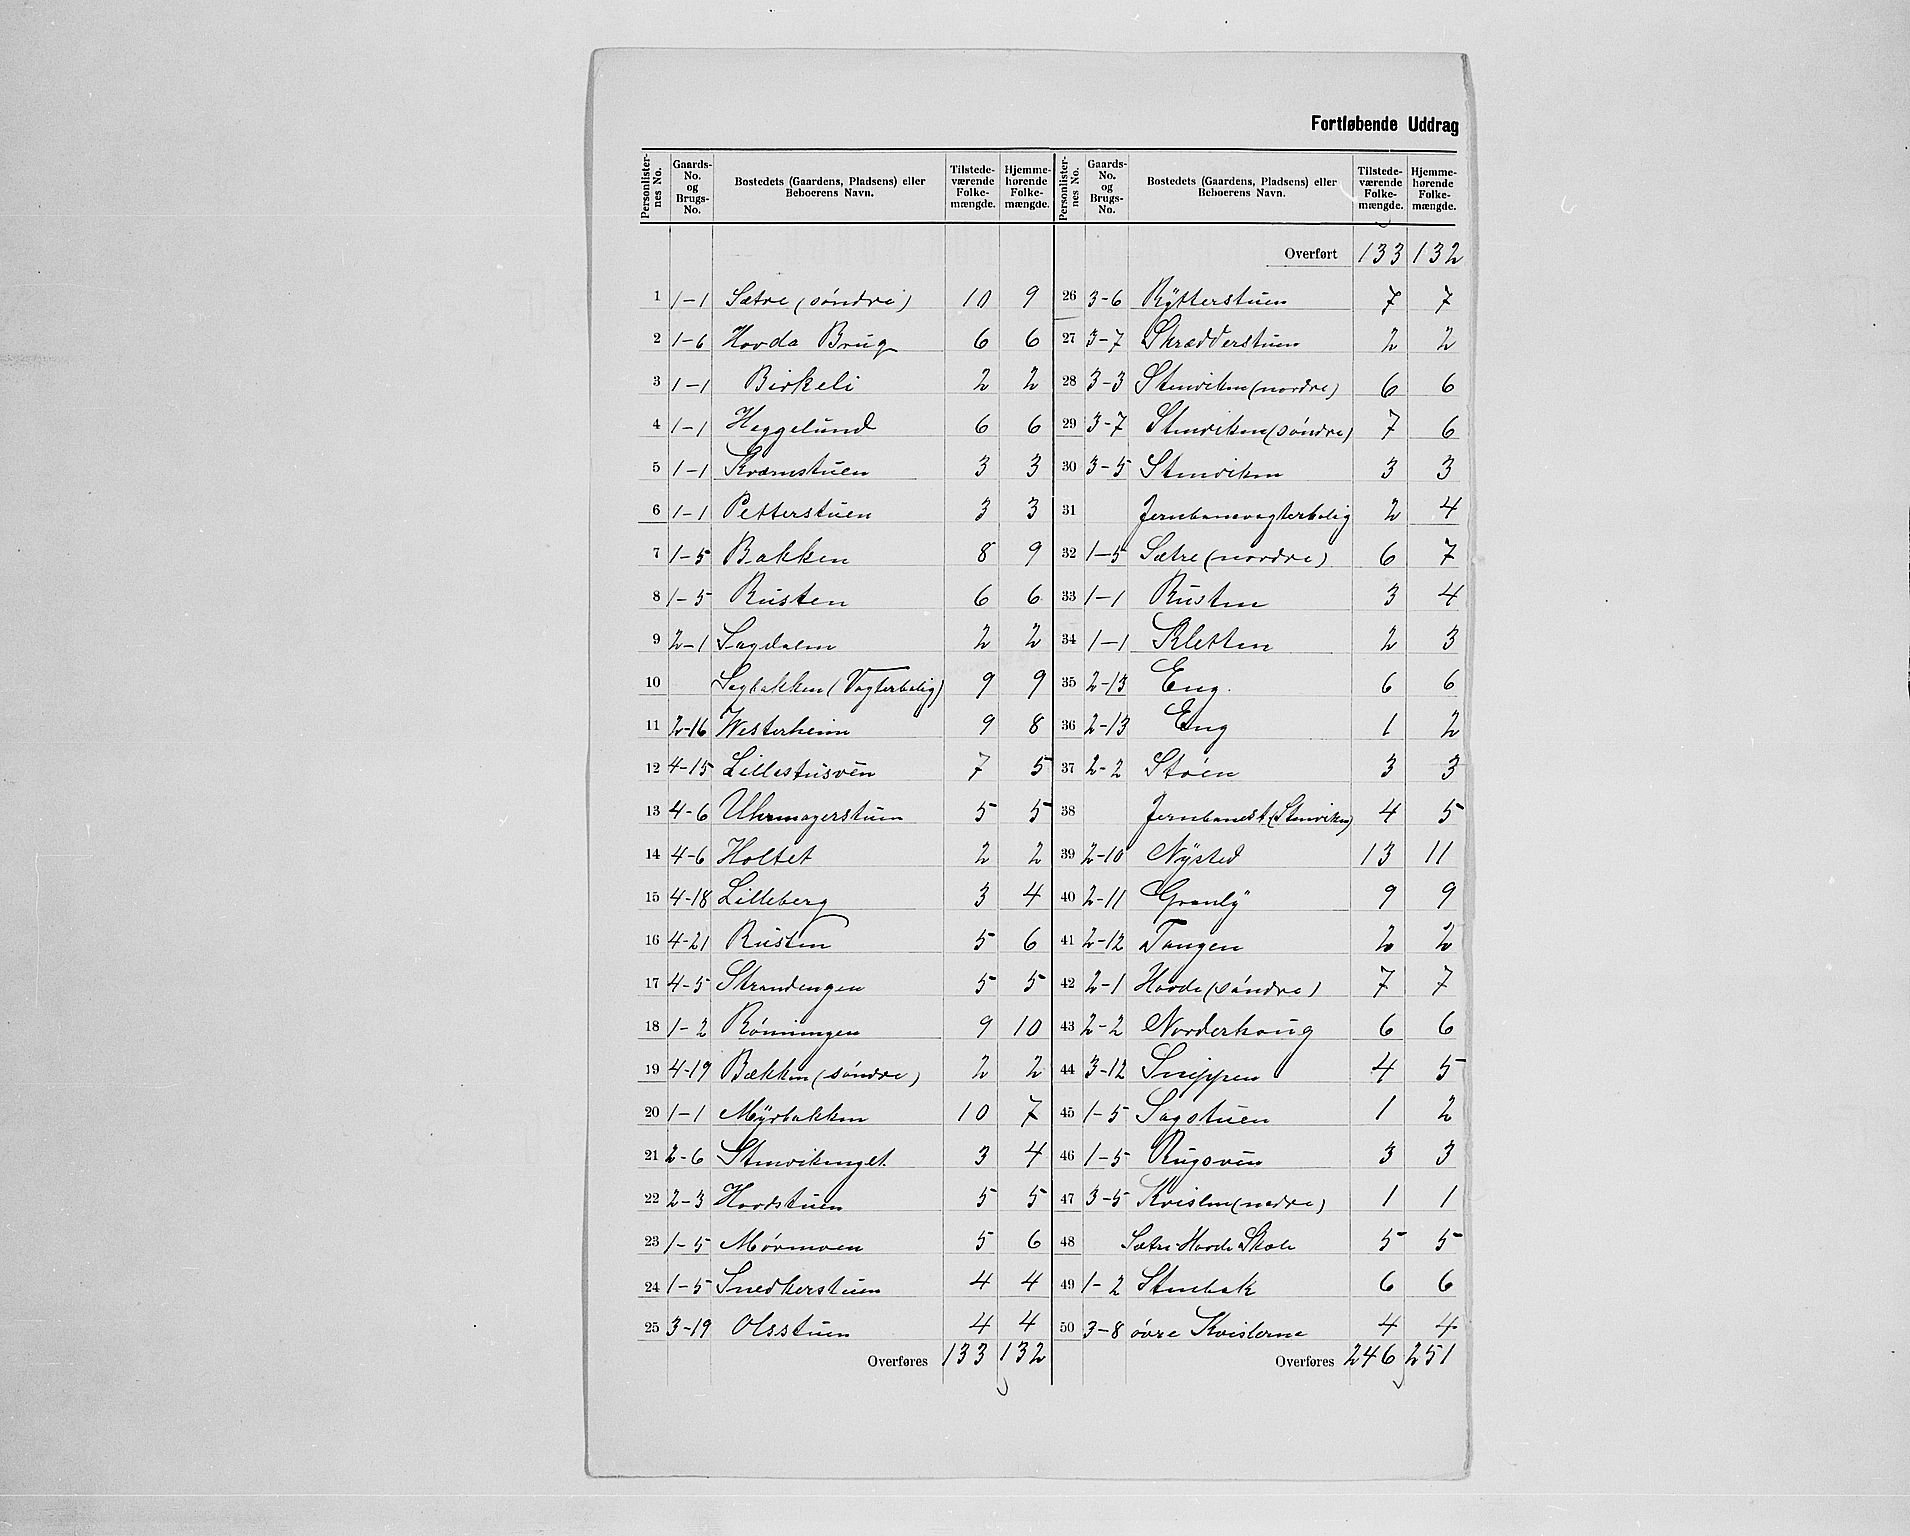 Fortløbende Uddrag
Personlister-nes No. Gaards-No. og Brugs-No. Bostedets (Gaardens, Pladsens) eller Beboerens Navn. Tilstede-værende Folke-mængde. Hjemme-hørende Folke-mængde.
1 1-1 Sætre (søndre) 10 9
2 1-6 Hovda Brug 6 6
3 1-1 Birkeli 2 2
4 1-1 Heggelund 6 6
5 1-1 Kværnstuen 3 3
6 1-1 Petterstuen 3 3
7 1-5 Bakken 8 9
8 1-5 Rusten 6 6
9 2-1 Sagdalen 2 2
10 Sagbakken (Vogterbolig) 9 9
11 2-16 Westerheim 9 8
12 4-15 Lillestusvén 7 5
13 4-6 Uhrmagerstuen 5 5
14 4-6 Holtet 2 2
15 4-18 Lilleberg 3 4
16 4-21 Rusten 5 6
17 4-5 Strandengen 5 5
18 1-2 Rønningen 9 10
19 4-19 Bækken (søndre) 2 2
20 1-1 Myrbakken 10 7
21 2-6 Stenvikenget 3 4
22 2-3 Hovdstuen 5 5
23 1-5 Mørmoen 5 6
24 1-5 Snedkerstuen 4 4
25 3-19 Olsstuen 4 4
Overføres 133 132
Personlister-nes No. Gaards-No. og Brugs-No. Bostedets (Gaardens, Pladsens) eller Beboerens Navn. Tilstede-værende Folke-mængde. Hjemme-hørende Folke-mængde.
Overført 133 132
26 3-6 Rytterstuen 7 7
27 3-7 Skrædderstuen 2 2
28 3-3 Stenviken (nordre) 6 6
29 3-7 Stenviken (søndre) 7 6
30 3-5 Stenviken 3 3
31 Jernbanevogterbolig 2 4
32 1-5 Sætre (nordre) 6 7
33 1-1 Rusten 3 4
34 1-1 Kletten 2 3
35 2-13 Eng. 6 6
36 2-13 Eng 1 2
37 2-2 Støen 3 3
38 Jernbanest. (Stenviken) 4 5
39 2-10 Nysted 13 11
40 2-11 Granly 9 9
41 2-12 Tangen 2 2
42 2-1 Hovde (søndre) 7 7
43 2-2 Norderhaug 6 6
44 3-12 Snippen 4 5
45 1-5 Sagstuen 1 2
46 1-5 Rugsvén 3 3
47 3-5 Kvislen (nedre) 1 1
48 Sætre-Hovde Skole 5 5
49 1-2 Stenbak 6 6
50 3-8 øvre Kvislerne 4 4
Overføres 246 251